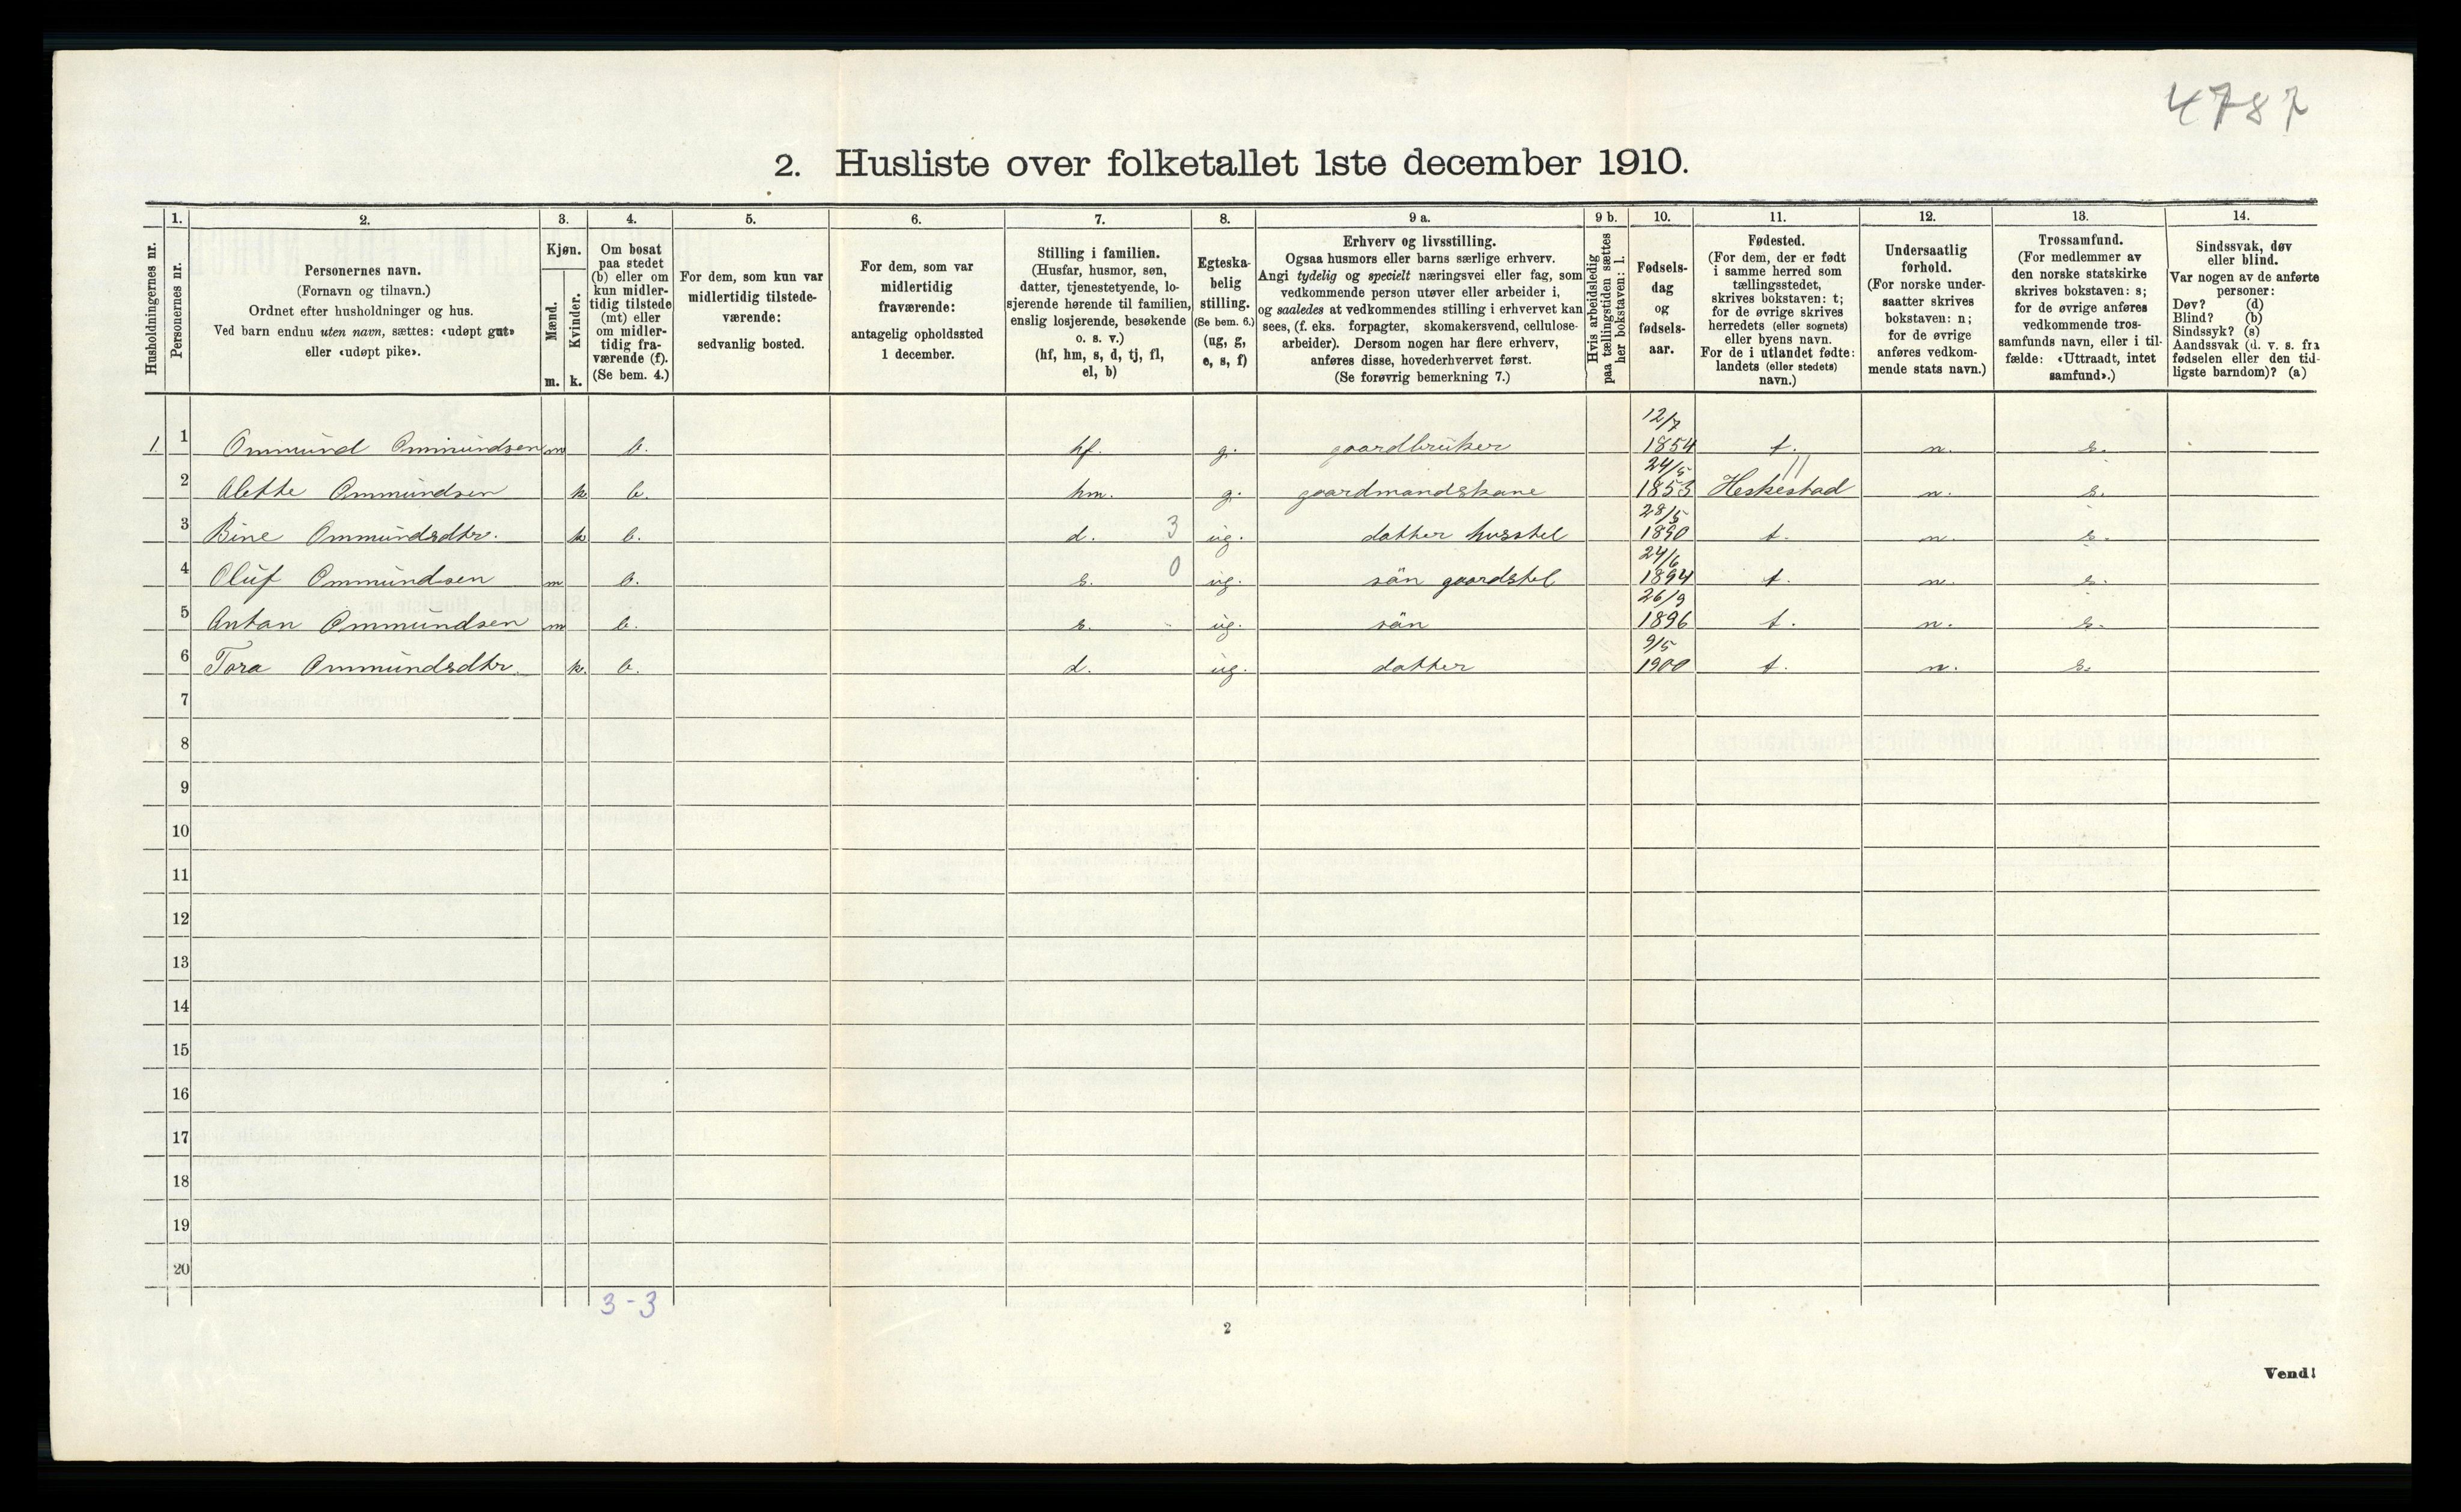 4787
2. Husliste over folketallet 1ste december 1910.
Husholdningernes nr.
1.
Personernes nr.
2.
Personernes navn.
(Fornavn og tilnavn.)
Ordnet efter husholdninger og hus.
Ved barn endnu uten navn, sættes: «udøpt gut»
eller «udøpt pike».
3.
Kjøn.
Mænd.
Kvinder.
m. k.
4.
Om bosat
paa stedet
(b) eller om
kun midler-
tidig tilstede
(mt) eller
om midler-
tidig fra-
værende (f).
(Se bem. 4.)
5.
For dem, som kun var
midlertidig tilstede-
værende:
sedvanlig bosted.
6.
For dem, som var
midlertidig
fraværende:
antagelig opholdssted
1 december.
7.
Stilling i familien.
(Husfar, husmor, søn,
datter, tjenestetyende, lo-
sjerende hørende til familien,
enslig losjerende, besøkende
o. s. v.)
(hf, hm, s, d, tj, fl,
el, b)
8.
Egteska-
belig
stilling.
(Se bem. 6.)
(ug, g,
e, s, f)
9 a.
Erhverv og livsstilling.
Ogsaa husmors eller barns særlige erhverv.
Angi tydelig og specielt næringsvei eller fag, som
vedkommende person utøver eller arbeider i,
og saaledes at vedkommendes stilling i erhvervet kan
sees, (f. eks. forpagter, skomakersvend, cellulose-
arbeider). Dersom nogen har flere erhverv,
anføres disse, hovederhvervet først.
(Se forøvrig bemerkning 7.)
9 b.
Hvis arbeidsledig
paa tællingstiden sættes
her bokstaven: l.
10.
Fødsels-
dag
og
fødsels-
aar.
11.
Fødested.
(For dem, der er født
i samme herred som
tællingsstedet,
skrives bokstaven: t;
for de øvrige skrives
herredets (eller sognets)
eller byens navn.
For de i utlandet fødte:
landets (eller stedets)
navn.)
12.
Undersaatlig
forhold.
(For norske under-
saatter skrives
bokstaven: n;
for de øvrige
anføres vedkom-
mende stats navn.)
13.
Trossamfund.
(For medlemmer av
den norske statskirke
skrives bokstaven: s;
for de øvrige anføres
vedkommende tros-
samfunds navn, eller i til-
fælde: «Uttraadt, intet
samfund».)
14.
Sindssvak, døv
eller blind.
Var nogen av de anførte
personer:
Døv? (d)
Blind? (b)
Sindssyk? (s)
Aandssvak (d. v. s. fra
fødselen eller den tid-
ligste barndom)? (a)
1. 1 Ommund Ommundsen m b. hf. g. gaardbruker 12/7 1854 t. n. s.
2 Alette Ommundsen k b. hm. g. gaardmandskone 24/5 1853 Heskestad n. s.
3 Bine Ommundsdtr. k b. d. 3 ug. datter husstel 28/5 1890 t. n. s.
4 Oluf Ommundsen m b. s. 0 ug. sön gaardstel 24/6 1894 t. n. s.
5 Antan Ommundsen m b. s. ug. sön 26/9 1896 t. n. s.
6 Tora Ommundsdtr. k. b. d. ug. datter 9/5 1900 t. n. s.
7
8
9
10
11
12
13
14
15
16
17
18
19
20
3-3
2
Vend!